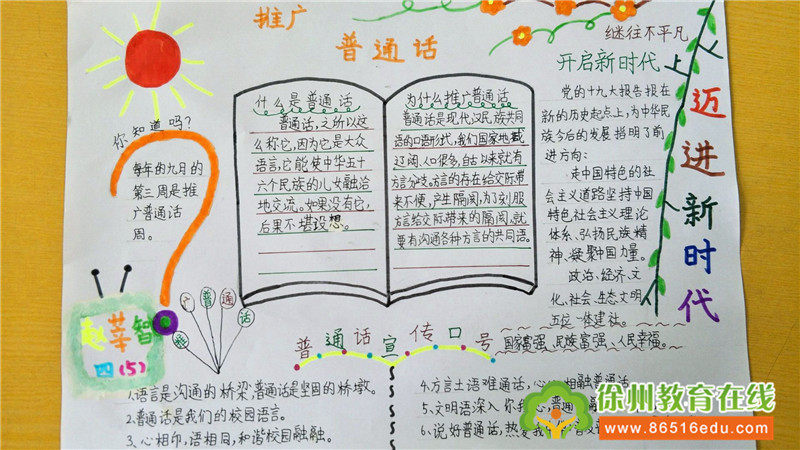 推广
普通话
继往不平凡
开启新时代
迈进新时代
你知道吗?
每年的九月的
第三周是推
广普通话
周。
什么是普通话
普通话,之所以这
么称它,因为它是大众
语言,它能使中华五十
六个民族的儿女融洽
地交流。如果没有它,
后果不堪设想。
为什么推广普通话
普通话是现代汉民族共同
话的口语形式,我们国家地域
辽阔、人口很多,自古以来就有
方言分歧。方言的存在给交际带
来不便,产生隔阂,为了刻服
方言给交际带来的隔阂、就
要有沟通各种方言的共同语。
党的十九大报告报在
新的历史起点上,为中华民
族今后的发展指明了前
进方向:
走中国特色的社
会主义道路坚持中国
特色社会主义理论
体系、弘扬民族精
神、凝聚中国力量。
政治、经济、文
化、社会、生态文明、
五位一体建社。
国家富强、民族富强、人民幸福。
莘智
四(5)
推广普通话
普通话宣传口号
1.语言是沟通的桥梁,普通话是坚固的桥墩。
2.普通话是我们的校园语言。
3.心相印,语相同,和谐校园融融。
4.方言土语难通话,心心相融普通话
5、文明语深入你我心,普通
6、说好普通话,热爱我
徐州教育在线
www.86516edu.com